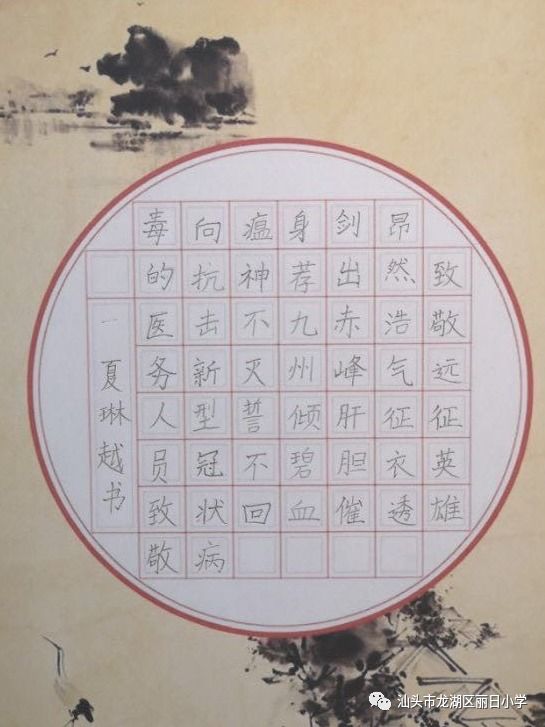 致敬远征英雄
昂然浩气征衣透
剑出赤峰肝胆催
身荐九州倾碧血
瘟神不灭誓不回
向抗击新型冠状病
毒的医务人员致敬
一夏琳越书
汕头市龙湖区丽日小学